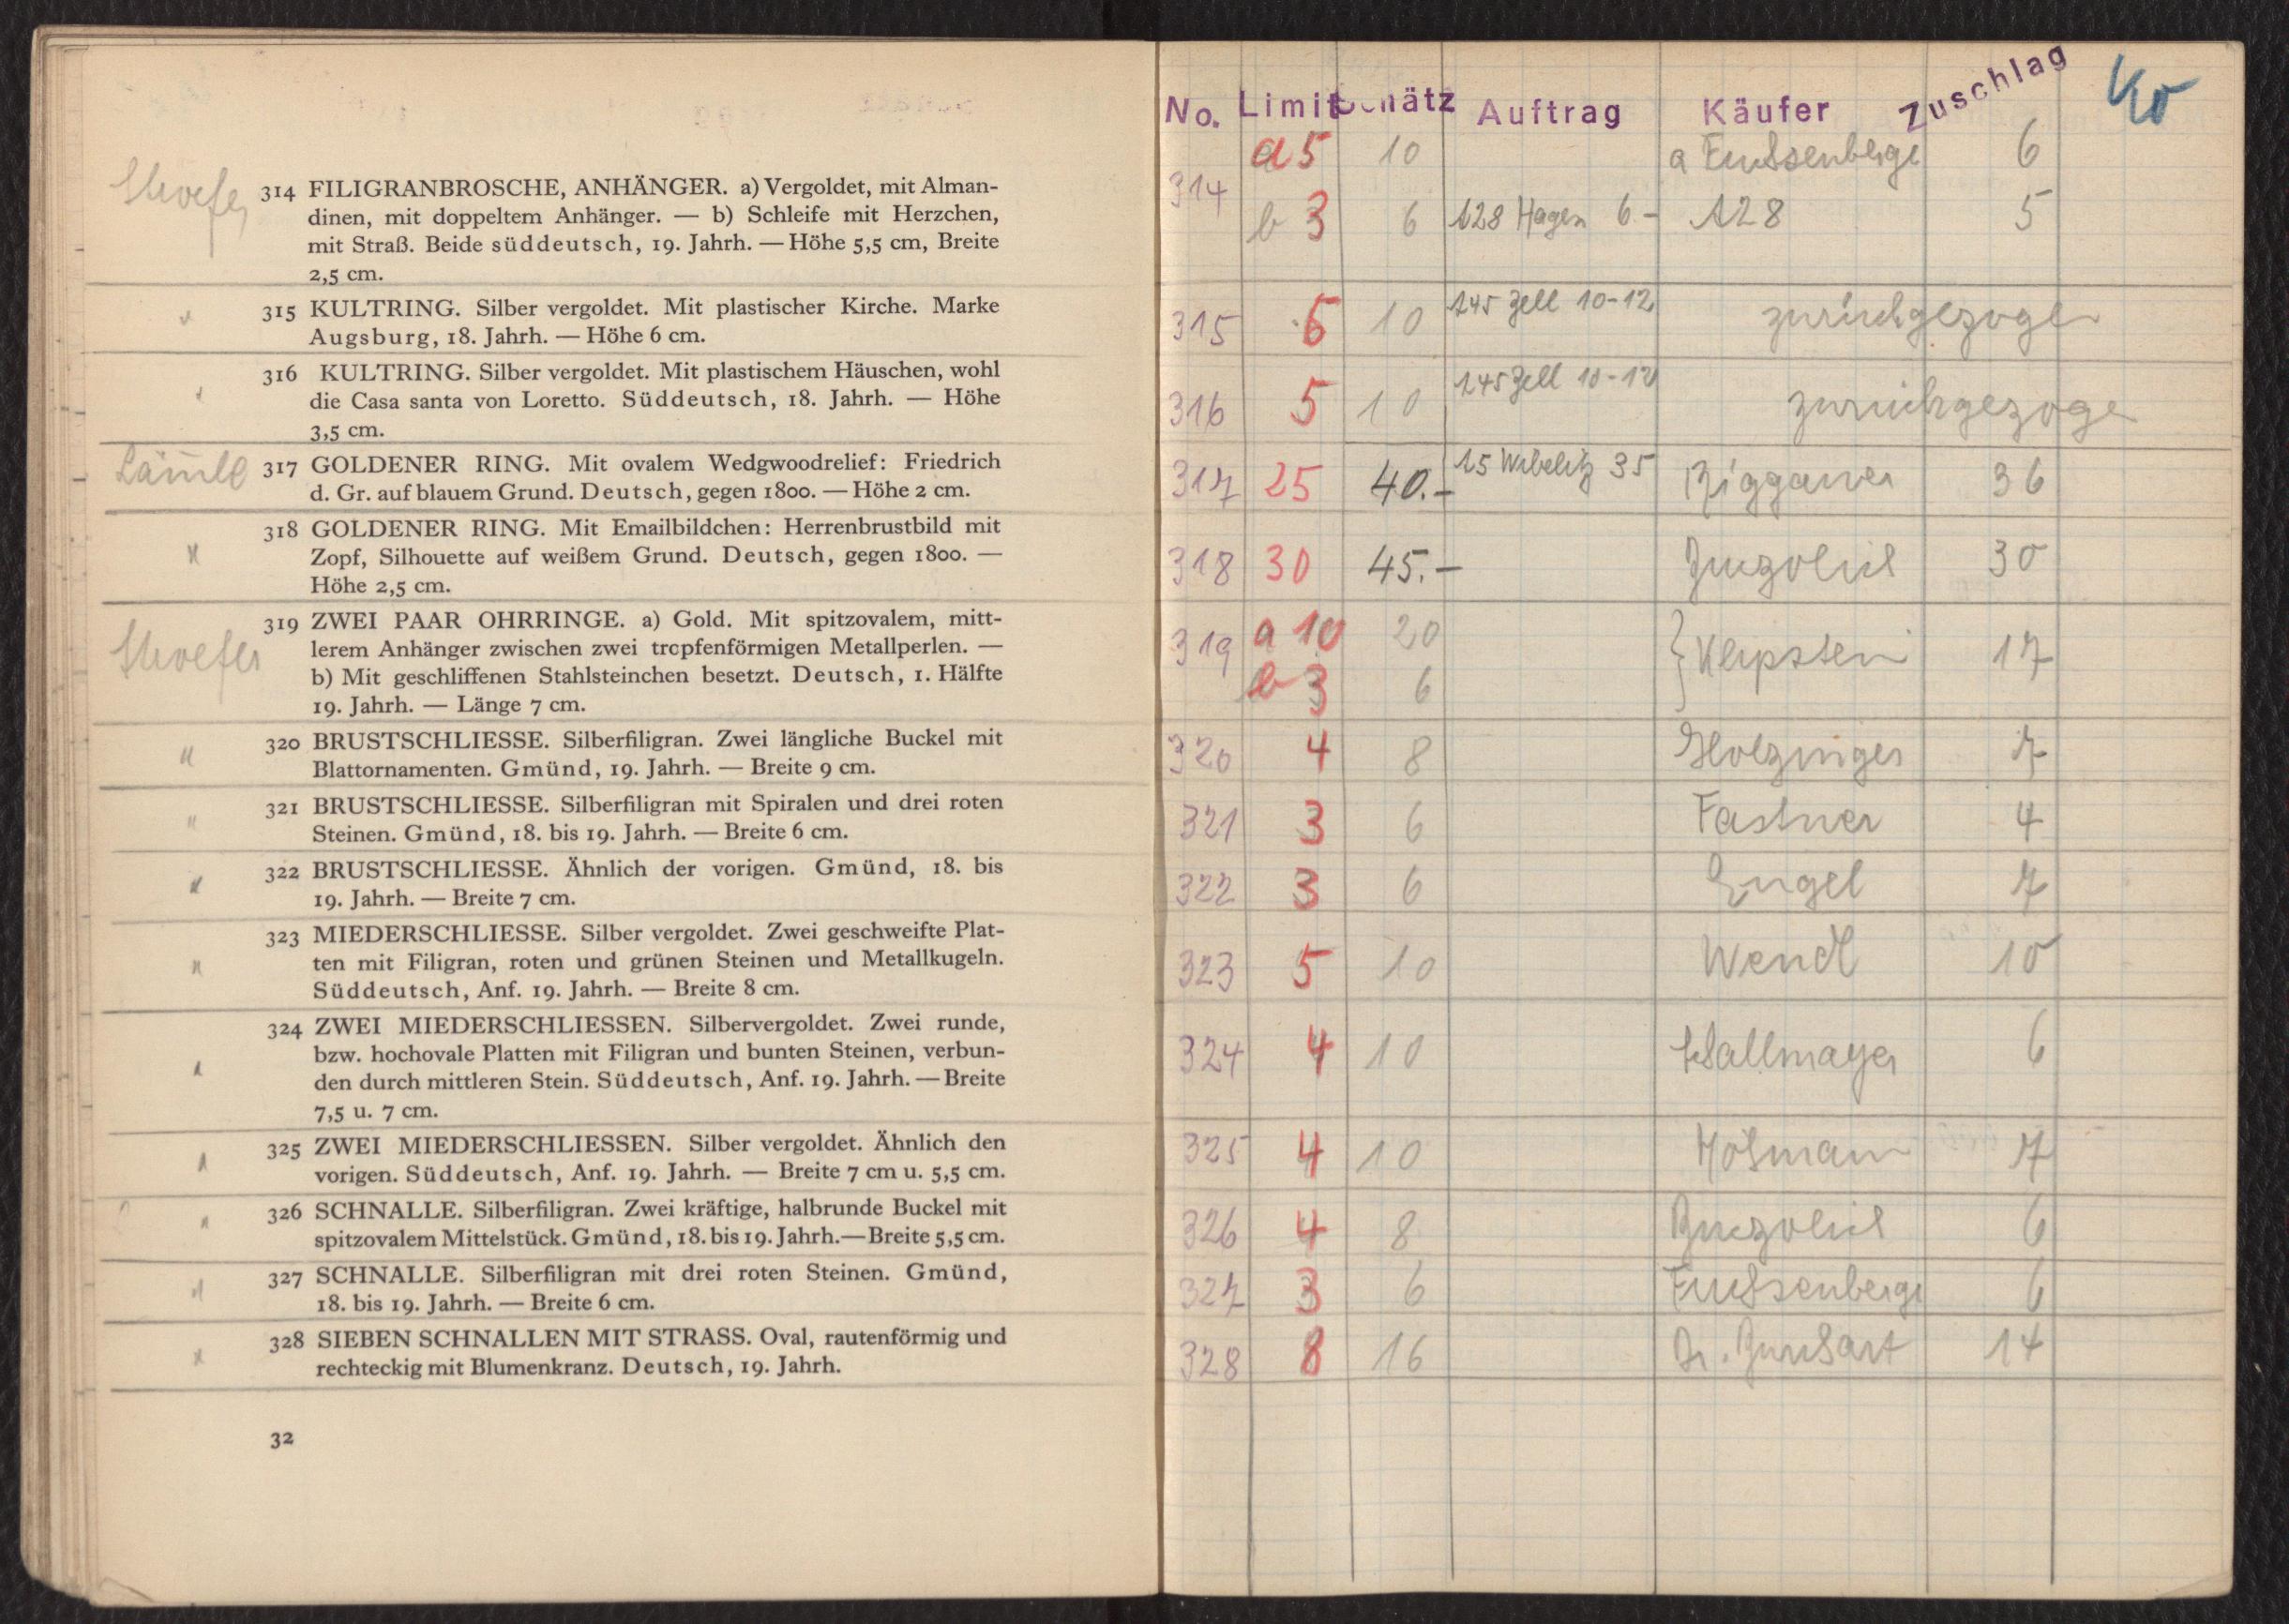 314 FILIGRANBROSCHE, ANHÄNGER. a) Vergoldet, mit Alman-
dinen, mit doppeltem Anhänger. — b) Schleife mit Herzchen,
mit Straß. Beide süddeutsch, 19. Jahrh. — Höhe 5,5 cm, Breite
2,5 cm.
315 KULTRING. Silber vergoldet. Mit plastischer Kirche. Marke
Augsburg, 18. Jahrh. — Höhe 6 cm.
316 KULTRING. Silber vergoldet. Mit plastischem Häuschen, wohl
die Casa santa von Loretto. Süddeutsch, 18. Jahrh. — Höhe
3,5 cm.
317 GOLDENER RING. Mit ovalem Wedgwoodrelief: Friedrich
d. Gr. auf blauem Grund. Deutsch, gegen 1800. — Höhe 2 cm.
" 318 GOLDENER RING. Mit Emailbildchen: Herrenbrustbild mit
Zopf, Silhouette auf weißem Grund. Deutsch, gegen 1800. —
Höhe 2,5 cm.
319 ZWEI PAAR OHRRINGE. a) Gold. Mit spitzovalem, mitt-
lerem Anhänger zwischen zwei tropfenförmigen Metallperlen. —
b) Mit geschliffenen Stahlsteinchen besetzt. Deutsch, 1. Hälfte
19. Jahrh. — Länge 7 cm.
" 320 BRUSTSCHLIESSE. Silberfiligran. Zwei längliche Buckel mit
Blattornamenten. Gmünd, 19. Jahrh. — Breite 9 cm.
" 321 BRUSTSCHLIESSE. Silberfiligran mit Spiralen und drei roten
Steinen. Gmünd, 18. bis 19. Jahrh. — Breite 6 cm.
" 322 BRUSTSCHLIESSE. Ähnlich der vorigen. Gmünd, 18. bis
19. Jahrh. — Breite 7 cm.
" 323 MIEDERSCHLIESSE. Silber vergoldet. Zwei geschweifte Plat-
ten mit Filigran, roten und grünen Steinen und Metallkugeln.
Süddeutsch, Anf. 19. Jahrh. — Breite 8 cm.
" 324 ZWEI MIEDERSCHLIESSEN. Silbervergoldet. Zwei runde,
bzw. hochovale Platten mit Filigran und bunten Steinen, verbun-
den durch mittleren Stein. Süddeutsch, Anf. 19. Jahrh. — Breite
7,5 u. 7 cm.
" 325 ZWEI MIEDERSCHLIESSEN. Silber vergoldet. Ähnlich den
vorigen. Süddeutsch, Anf. 19. Jahrh. — Breite 7 cm u. 5,5 cm.
" 326 SCHNALLE. Silberfiligran. Zwei kräftige, halbrunde Buckel mit
spitzovalem Mittelstück. Gmünd, 18. bis 19. Jahrh. — Breite 5,5 cm.
" 327 SCHNALLE. Silberfiligran mit drei roten Steinen. Gmünd,
18. bis 19. Jahrh. — Breite 6 cm.
" 328 SIEBEN SCHNALLEN MIT STRASS. Oval, rautenförmig und
rechteckig mit Blumenkranz. Deutsch, 19. Jahrh.
32
No. Limit Schätz Auftrag Käufer Zuschlag
314 a 5 10 a 6
b 3 6 128 Hagen 6.- 128 5
315 5 10 145 Zell 10-12 zurückgezogen
316 5 10 145 Zell 10-12 zurückgezogen
317 25 40.- 15 35 36
318 30 45.- 30
319 a 10 20 } Klipstein 17
b 3 6
320 4 8 Holzinger 7
321 3 6 Fastner 4
322 3 6 Engel 7
323 5 10 Wendl 10
324 4 10 Wallmayer 6
325 4 10 7
326 4 8 6
327 3 6 6
328 8 16 14